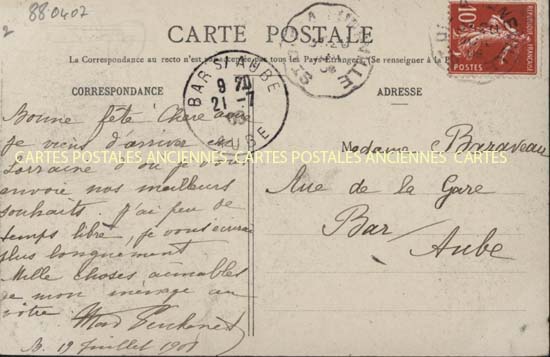 88.0402
2
CARTE POSTALE
La Correspondance au recto n'est pas acceptée par tous les Pays Étrangers. (Se renseigner à la
CORRESPONDANCE
ADRESSE
BAR S/ AUBE
9 70
21 - 7
AUBE
RÉPUBLIQUE FRANÇAISE
10
POSTES
Bonne fête Chère amie
je viens d'arriver en
Lorraine d'où je vous
envoie nos meilleurs
souhaits. J'ai peu de
temps libre, je vous écrirai
plus longuement
Mille choses aimables
de mon ménage au
vôtre
B. 19 Juillet 190
Madame Baraveau
Rue de la Gare
Bar/
Aube
CARTES POSTALES ANCIENNES CARTES POSTALES ANCIENNES CARTES